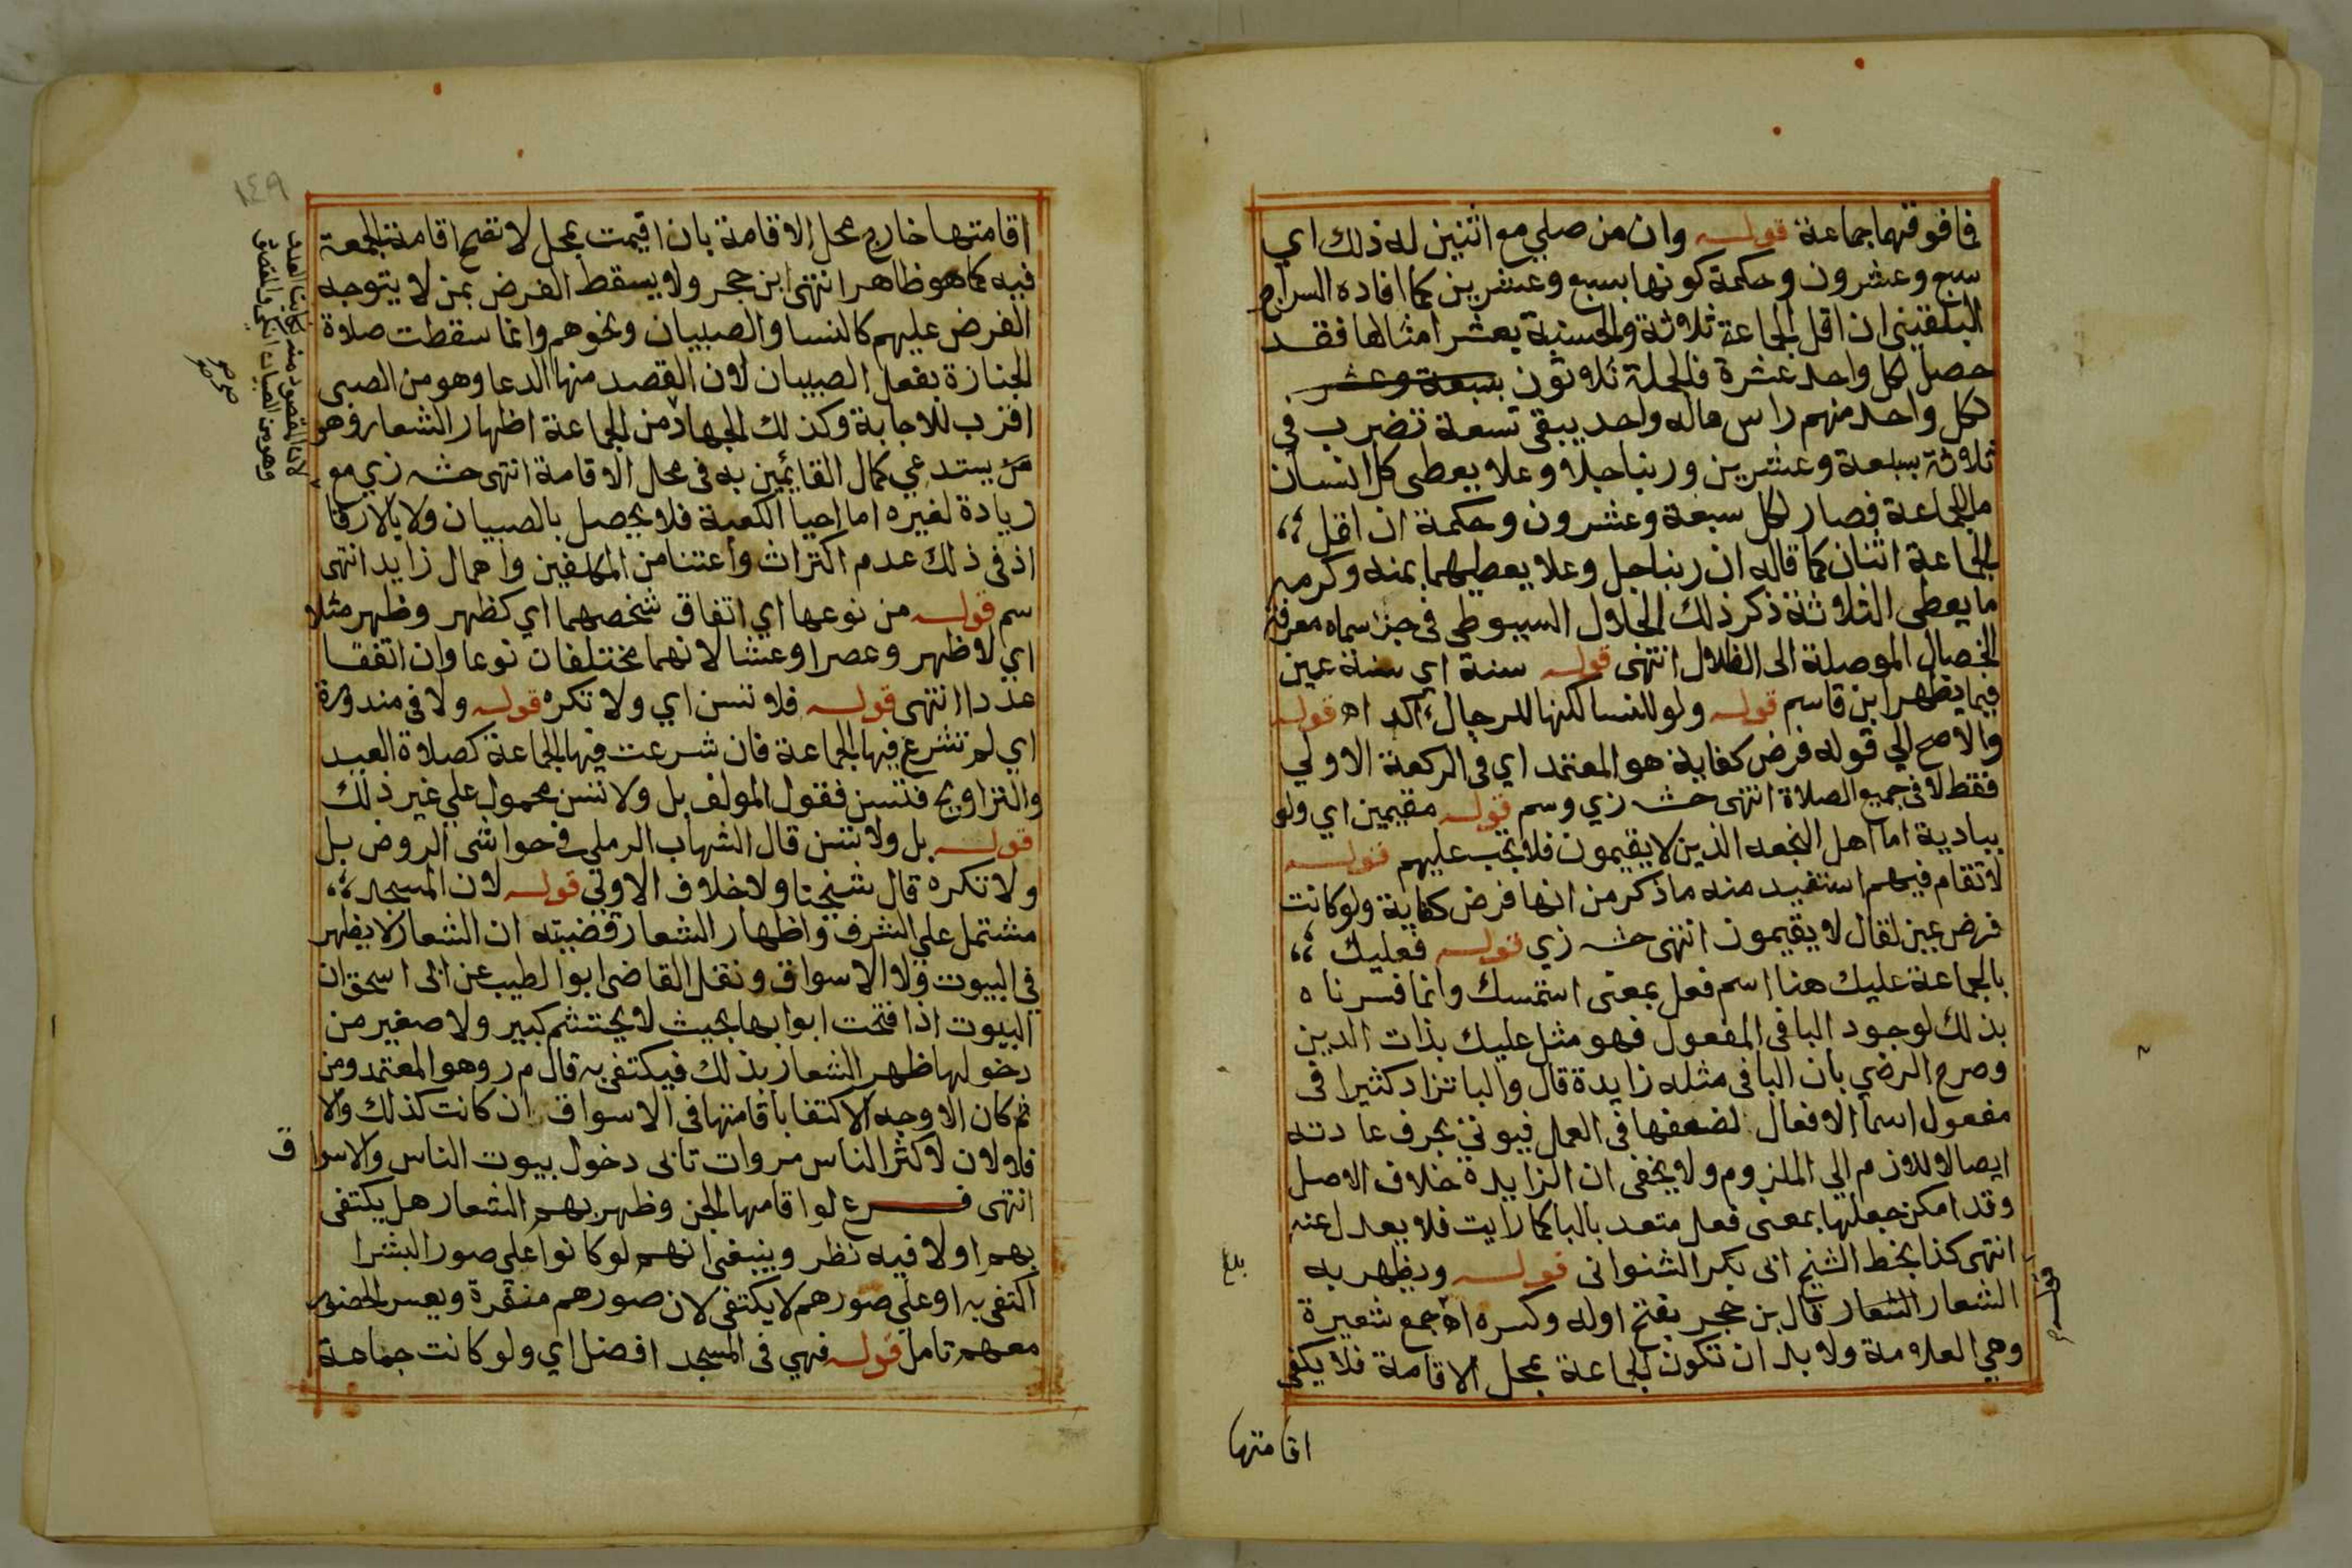 فما فوقهما جماعة قوله وان من صلي مع اثنين له ذلك اي
سبع وعشرون وحكمة كونها بسبع وعشرين كما افاده السراج
البلقيني ان اقل الجماعة ثلاثة والحسنة بعشر امثالها فقد
حصل لكل واحد عشرة فالجملة ثلاثون بسبعة وعشر
لكل واحد منهم راس ماله واحد يبقى تسعة تضرب في
ثلاثة بسبعة وعشرين وربنا جلا وعلا يعطى كل انسان
ما للجماعة فصار لكل سبعة وعشرون وحكمة ان اقل
الجماعة اثنان كما قاله ان ربنا جل وعلا يعطيهما بمنه وكرمه
ما يعطى الثلاثة ذكر ذلك الجلال السيوطى في جزء سماه معرفة
الخصال الموصلة الى الظلال انتهى قوله سنة اي سنة عين
فيما يظهر ابن قاسم قوله ولو للنسا لكنها للرجال اكد اه قوله
والاصح الي قوله فرض كفاية هو المعتمد اي في الركعة الاولي
فقط لا في جميع الصلاة انتهى حشه زي وسم قوله مقيمين اي ولو
ببادية اما اهل النجعه الذين لا يقيمون فلا تجب عليهم قوله
لا تقام فيهم استفيد منه ما ذكر من انها فرض كفاية ولو كانت
فرض عين لقال لا يقيمون انتهى حشه زي قوله فعليك
بالجماعة عليك هنا اسم فعل بمعنى استمسك وانما فسرناه
بذلك لوجود البا في المفعول فهو مثل عليك بذات الدين
وصرح الرضي بان البا في مثله زايدة قال والبا تزاد كثيرا في
مفعول اسما الافعال لضعفها في العمل فيوتى بحرف عادته
ايصال اللازم الي الملزوم ولا يخفى ان الزايدة خلاف الاصل
وقد امكن جعلها بمعنى فعل متعد بالبا كما رايت فلا يعدل عنه
انتهى كذا بخط الشيخ ابى بكر الشنوانى قوله ويظهر به
الشعار الشعار قال بن حجر بفتح اوله وكسره اه جمع شعيرة
وهي العلامة ولا بد ان تكون الجماعة بمحل الاقامة فلا يكفى
بلغ
اقامتها
١٤٩
اقامتها خارج محل الاقامة بان اقيمت بمحل لا تصح اقامة الجمعة
فيه كما هو ظاهر انتهى ابن حجر ولا يسقط الفرض بمن لا يتوجه
الفرض عليهم كالنسا والصبيان ونحوهم وانما سقطت صلاة
الجنازة بفعل الصبيان لان القصد منها الدعا وهو من الصبى
اقرب للاجابة وكذلك الجهاد من الجماعة اظهار الشعار وهو
يستدعي كمال القايمين به في محل الاقامة انتهى حشه زي مع
زيادة لغيره اما احيا الكعبة فلا يحصل بالصبيان ولا بالارقا
اذ في ذلك عدم اكتراث واعتنا من المكلفين واهمال زايد انتهى
سم قوله من نوعها اي اتفاق شخصهما اي كظهر وظهر مثلا
اي لا ظهر وعصرا وعشا لانهما مختلفان نوعا وان اتفقا
عددا انتهى قوله فلا تسن اي ولا تكره قوله ولا في منذورة
اي لم تشرع فيها الجماعة فان شرعت فيها الجماعة كصلاة العيد
والتراويح فتسن فقول المولف بل ولا تسن محمول علي غير ذلك
قوله بل ولا تسن قال الشهاب الرملي في حواشى الروض بل
ولا تكره قال شيخنا ولا خلاف الاولى قوله لان المسجد
مشتمل علي الشرف واظهار الشعار قضيته ان الشعار لا يظهر
في البيوت ولا الاسواق ونقل القاضى ابوا لطيب عن ابى اسحق ان
البيوت اذا فتحت ابوابها بحيث لا يحتشم كبير ولا صغير من
دخولها ظهر الشعار بذلك فيكتفى به قال م ر وهو المعتمد ومن
ثم كان الاوجه الاكتفا باقامتها في الاسواق ان كانت كذلك والا
فلا لان لاكثر الناس مروات تابى دخول بيوت الناس والاسواق
انتهى فرع لو اقامها الجن وظهر بهم الشعار هل يكتفى
بهم اولا فيه نظر وينبغى انهم لو كانوا على صور البشر
اكتفى به او على صورهم لا يكتفى لان صورهم منفرة ويعسر الحضور
معهم تامل قوله فهي في المسجد افضل اي ولو كانت جماعة